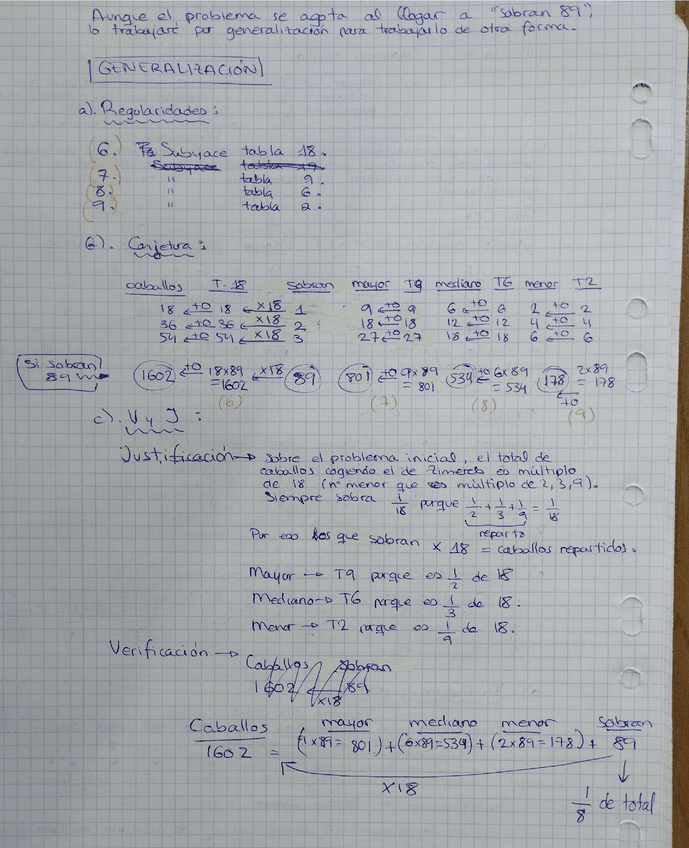 Aunque el problema se agota al llegar a "sobran 89",
lo trabajaré por generalización para trabajarlo de otra forma.
GENERALIZACIÓN
a). Regularidades:
(6.) Subyace tabla 18.
Subyace tabla
(7.) " tabla 9.
(8.) " tabla 6.
(9.) " tabla 2.
b). Conjetura:
caballos T.18 sobran mayor T9 mediano T6 menor T2
18 ←+0 18 ←x18 1 9 ←+0 9 6 ←+0 6 2 ←+0 2
36 ←+0 36 ←x18 2 18 ←+0 18 12 ←+0 12 4 ←+0 4
54 ←+0 54 ←x18 3 27 ←+0 27 18 ←+0 18 6 ←+0 6
Si sobran 89 → 1602 ←+0 18x89 =1602 ←x18 89 801 ←+0 9x89 = 801 534 ←+0 6x89 = 534 178 ←+0 2x89 = 178
(6) (7) (8) (9)
c). V y J:
Justificación → sobre el problema inicial, el total de
caballos cogiendo el de es múltiplo
de 18 (nº menor que es múltiplo de 2, 3, 9).
Siempre sobra 1/18 porque 1/2 + 1/3 + 1/9 = 1/18
reparto
Por eso los que sobran x 18 = caballos repartidos.
Mayor → T9 porque es 1/2 de 18
Mediano → T6 porque es 1/3 de 18.
Menor → T2 porque es 1/9 de 18.
Verificación → Caballos sobran
1602 ← 89
x18
Caballos mayor mediano menor sobran
1602 = (9x89= 801) + (6x89=534) + (2x89=178) + 89
x18
1/8 de total